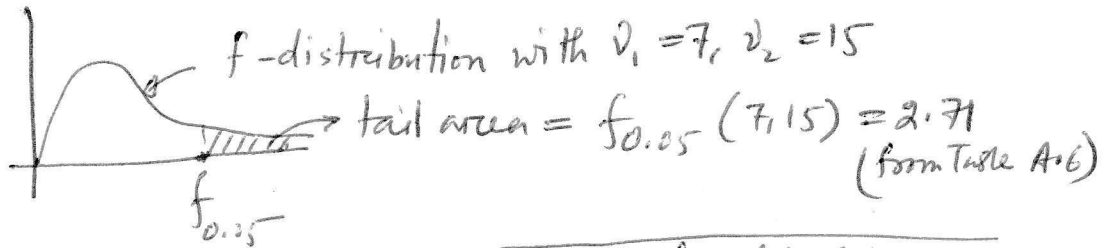 f-distribution with ν₁ = 7, ν₂ = 15
tail area = f₀.₀₅ (7,15) = 2.71
(from Table A.6)
f₀.₀₅